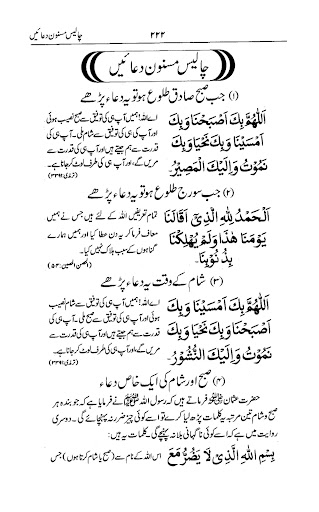 چالیس مسنون دعائیں ۲۲۲ چالیس مسنون دعائیں
چالیس مسنون دعائیں
(۱) جب صبح صادق طلوع ہو تو یہ دعاء پڑھے
اَللّٰهُمَّ بِكَ اَصْبَحْنَا وَبِكَ اَمْسَيْنَا وَبِكَ نَحْيَا وَبِكَ نَمُوْتُ وَاِلَيْكَ الْمَصِيْرُ
اے اللہ! ہمیں آپ ہی کی توفیق سے صبح نصیب ہوئی
اور آپ ہی کی توفیق سے شام ملی۔ آپ ہی کی
قدرت سے ہم جیتے ہیں اور آپ ہی کی قدرت سے
مریں گے، اور آپ ہی کی طرف لوٹ کر جانا ہے۔
(ترمذی: ۳۳۹۱)
(۲) جب سورج طلوع ہو تو یہ دعاء پڑھے
اَلْحَمْدُ لِلّٰهِ الَّذِیْ اَقَالَنَا
يَوْمَنَا هٰذَا وَلَمْ يُهْلِكْنَا
بِذُنُوْبِنَا۔
تمام تعریفیں اللہ کے لئے ہیں جس نے ہمیں
معاف فرما کر یہ دن عطا کیا اور ہمیں ہمارے
گناہوں کے سبب ہلاک نہیں کیا۔
(۳) شام کے وقت یہ دعاء پڑھے
اَللّٰهُمَّ بِكَ اَمْسَيْنَا وَبِكَ
اَصْبَحْنَا وَبِكَ نَحْيَا وَبِكَ
نَمُوْتُ وَاِلَيْكَ النُّشُوْرُ۔
اے اللہ! ہمیں آپ ہی کی توفیق سے شام نصیب
ہوئی اور آپ ہی کی توفیق سے صبح ملی، آپ ہی کی
قدرت سے ہم جیتے ہیں اور آپ ہی کی قدرت سے
مریں گے، اور آپ ہی کی طرف لوٹ کر جانا ہے۔
(ترمذی: ۳۳۹۱)
(۴) صبح اور شام کی ایک خاص دعاء
حضرت عثمان ؓ فرماتے ہیں کہ رسول اللہ ﷺ نے فرمایا ہے کہ جو بندہ ہر
صبح و شام تین مرتبہ یہ کلمات پڑھ لیا کرے تو اسے کوئی چیز ضرر نہ پہنچائے گی۔ دوسری
روایت میں ہے کہ اسے کوئی ناگہانی بلا نہ پہنچے گی۔ کلمات یہ ہیں:
بِسْمِ اللّٰهِ الَّذِیْ لَا يَضُرُّ مَعَ اس اللہ کے نام سے (صبح یا شام کرتا ہوں) جس